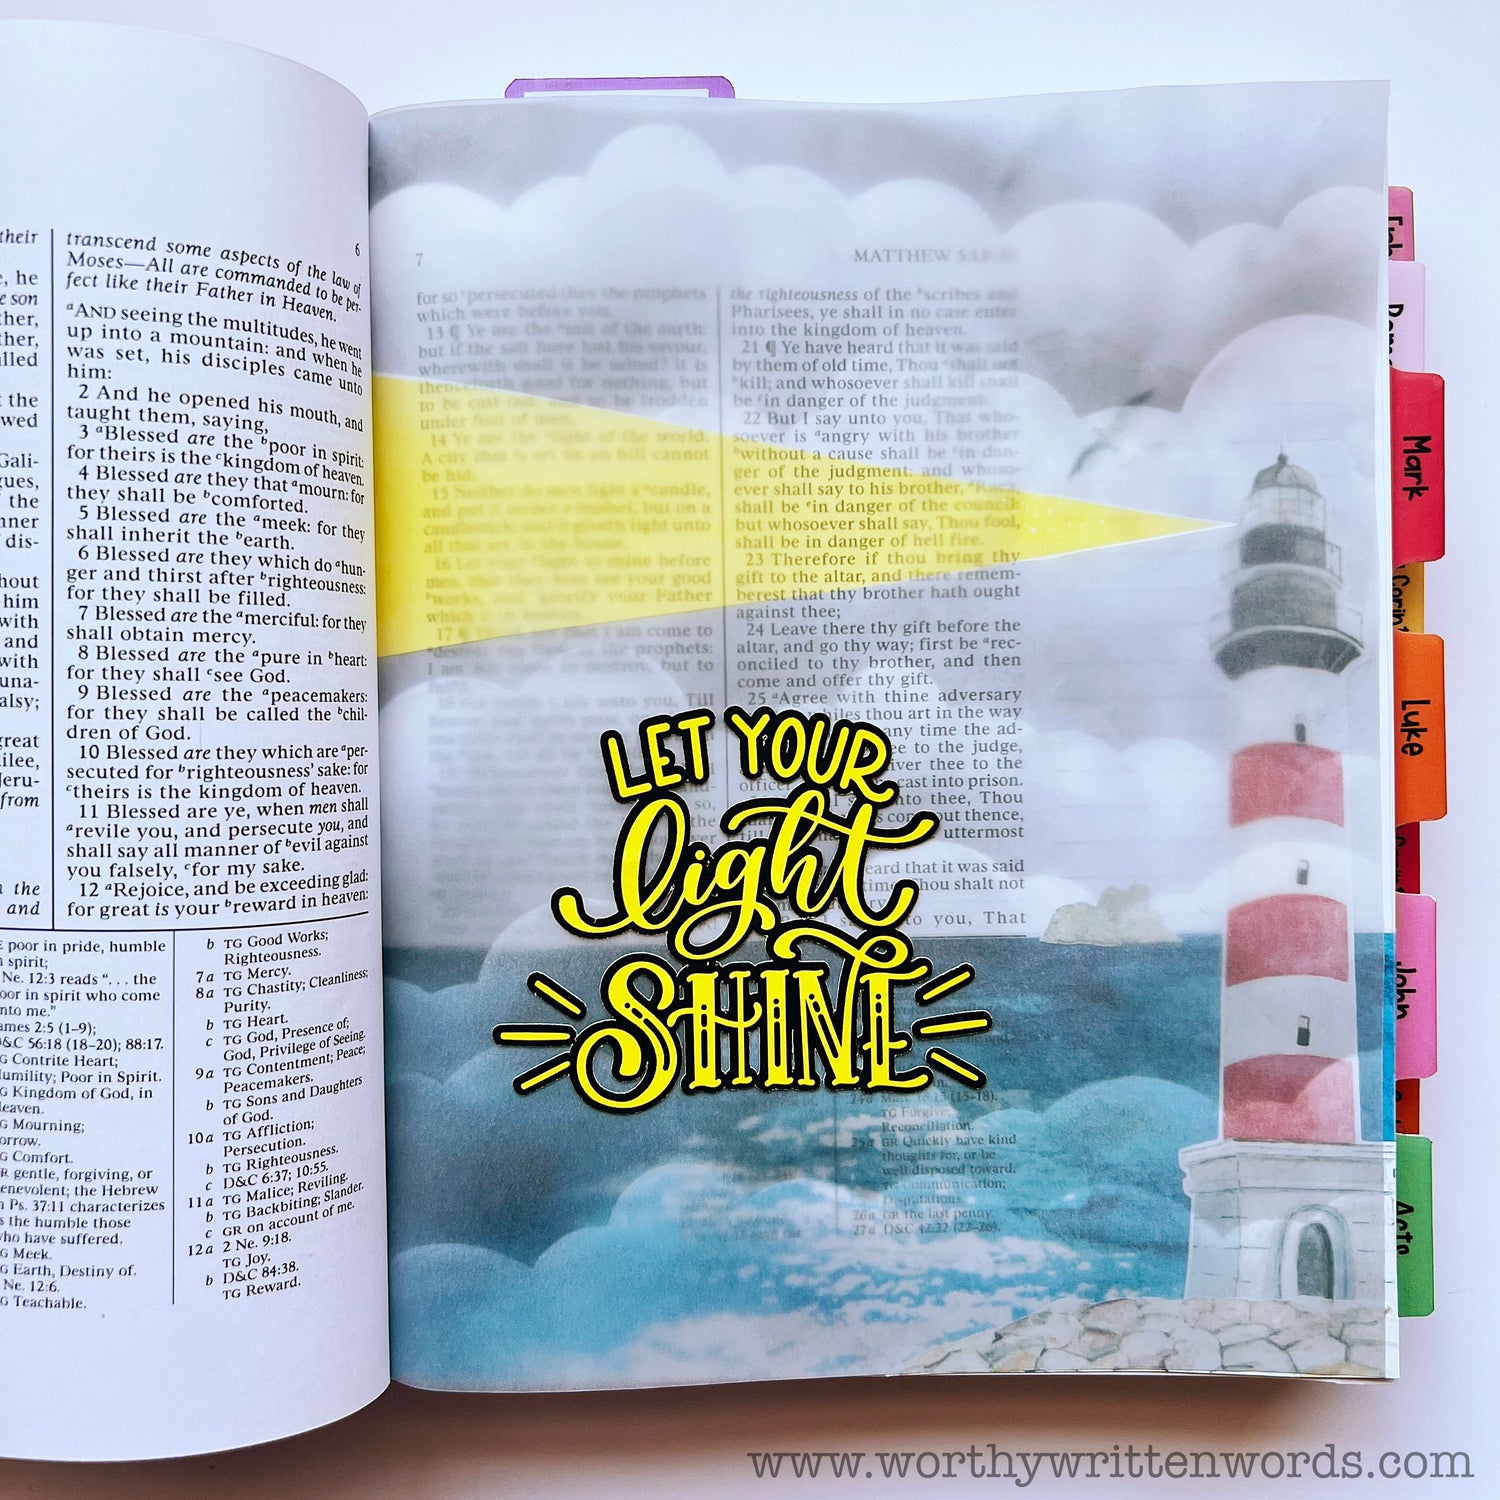 their
, he
e son
ther,
ther,
lled
t the
wed
Gali-
gues,
the
nner
dis-
hout
him
with
and
with
una-
alsy;
great
ilee,
Jeru-
from
n the
and
6
transcend some aspects of the law of
Moses—All are commanded to be per-
fect like their Father in Heaven.
aAND seeing the multitudes, he went
up into a mountain: and when he
was set, his disciples came unto
him:
2 And he opened his mouth, and
taught them, saying,
3 aBlessed are the bpoor in spirit:
for theirs is the ckingdom of heaven.
4 Blessed are they that amourn: for
they shall be bcomforted.
5 Blessed are the ameek: for they
shall inherit the bearth.
6 Blessed are they which do ahun-
ger and thirst after brighteousness:
for they shall be filled.
7 Blessed are the amerciful: for they
shall obtain mercy.
8 Blessed are the apure in bheart:
for they shall csee God.
9 Blessed are the apeacemakers:
for they shall be called the bchil-
dren of God.
10 Blessed are they which are aper-
secuted for brighteousness' sake: for
ctheirs is the kingdom of heaven.
11 Blessed are ye, when men shall
arevile you, and persecute you, and
shall say all manner of bevil against
you falsely, cfor my sake.
12 aRejoice, and be exceeding glad:
for great is your breward in heaven:
poor in pride, humble
spirit;
Ne. 12:3 reads “. . . the
oor in spirit who come
nto me.”
ames 2:5 (1–9);
D&C 56:18 (18–20); 88:17.
G Contrite Heart;
Humility; Poor in Spirit.
G Kingdom of God, in
Heaven.
G Mourning;
orrow.
G Comfort.
R gentle, forgiving, or
enevolent; the Hebrew
Ps. 37:11 characterizes
s the humble those
who have suffered.
G Meek.
G Earth, Destiny of.
Ne. 12:6.
G Teachable.
b TG Good Works;
Righteousness.
7a TG Mercy.
8a TG Chastity; Cleanliness;
Purity.
b TG Heart.
c TG God, Presence of;
God, Privilege of Seeing.
9a TG Contentment; Peace;
Peacemakers.
b TG Sons and Daughters
of God.
10a TG Affliction;
Persecution.
b TG Righteousness.
c D&C 6:37; 10:55.
11a TG Malice; Reviling.
b TG Backbiting; Slander.
c GR on account of me.
12a 2 Ne. 9:18.
TG Joy.
b D&C 84:38.
TG Reward.
7
MATTHEW 5:13
for so persecuted they the prophets
which were before you.
13 ¶ Ye are the salt of the earth:
but if the salt have lost his savour,
wherewith shall it be salted? it is
thenceforth good for nothing, but
to be cast out, and to be trodden
under foot of men.
14 Ye are the light of the world.
A city that is set on an hill cannot
be hid.
15 Neither do men light a candle,
and put it under a bushel, but on a
candlestick; and it giveth light unto
all that are in the house.
16 Let your light so shine before
men, that they may see your good
works, and glorify your Father
which is in heaven.
17 ¶ Think not that I am come to
destroy the law, or the prophets:
I am not come to destroy, but to
Till
so,
the
the righteousness of the bscribes and
Pharisees, ye shall in no case enter
into the kingdom of heaven.
21 ¶ Ye have heard that it was said
by them of old time, Thou ashalt not
bkill; and whosoever shall kill shall
be cin danger of the judgment:
22 But I say unto you, That who-
soever is aangry with his brother
bwithout a cause shall be cin dan-
ger of the judgment: and whoso-
ever shall say to his brother, dRaca,
shall be ein danger of the council:
but whosoever shall say, Thou fool,
shall be in danger of hell fire.
23 Therefore if thou bring thy
gift to the altar, and there remem-
berest that thy brother hath ought
against thee;
24 Leave there thy gift before the
altar, and go thy way; first be arec-
onciled to thy brother, and then
come and offer thy gift.
25 aAgree with thine adversary
hiles thou art in the way
any time the ad-
ee to the judge,
iver thee to the
officer cast into prison.
nto thee, Thou
come out thence,
till uttermost
eard that it was said
time, Thou shalt not
to you, That
(15–18).
TG Forgive;
Reconciliation.
25a GR Quickly have kind
thoughts for, or be
well disposed toward.
TG Communication;
Disputations.
26a GR the last penny.
27a D&C 42:22 (22–26).
LET YOUR
light
SHINE
Mark
Luke
John
Acts
www.worthywrittenwords.com